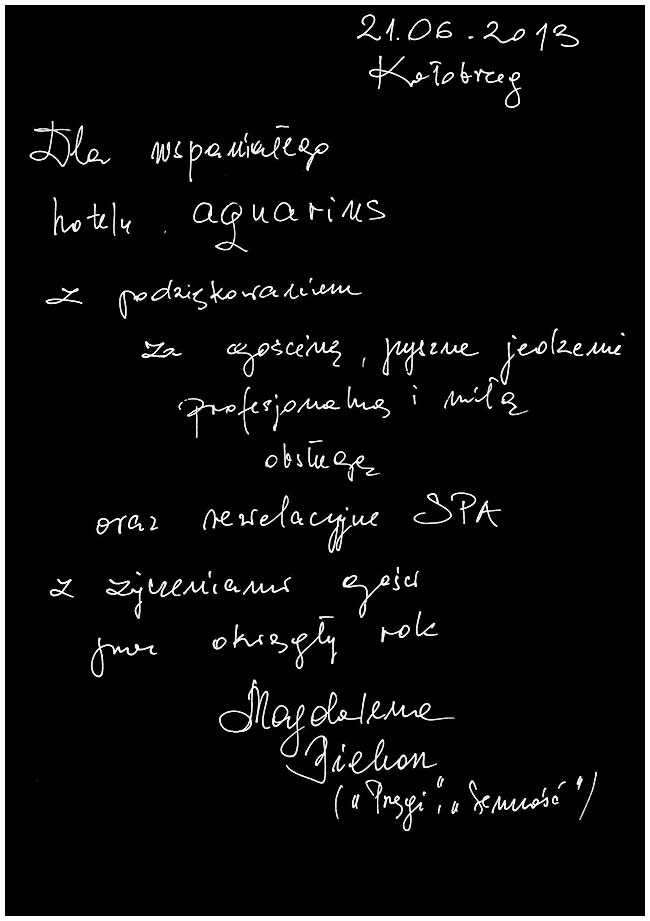 21.06.2013
Kołobrzeg
Dla wspaniałego
hotelu aquarius
z podziękowaniem
za gościnę, pyszne jedzenie
profesjonalną i miłą
obsługę
oraz rewelacyjne SPA
z życzeniami gości
przez okrągły rok
Magdalena
Piekorz
("Pręgi", "Senność")